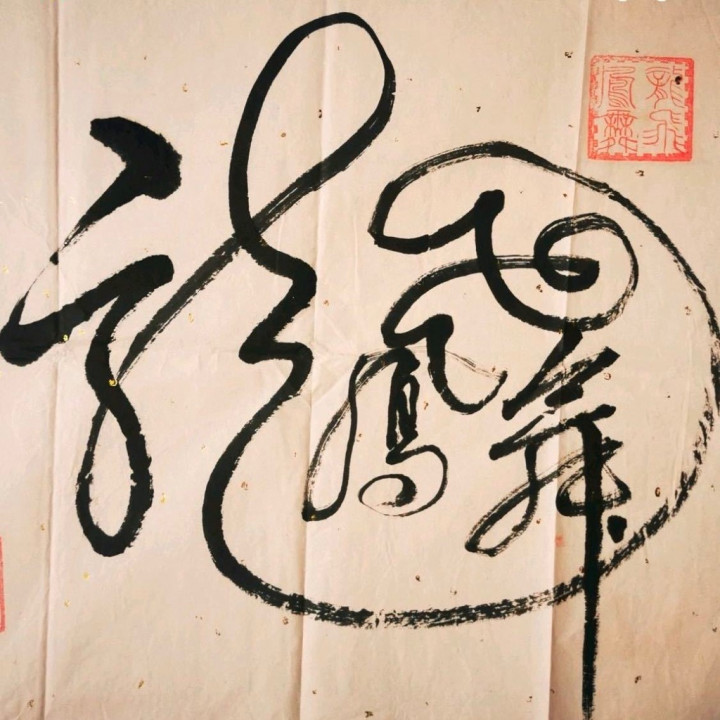 龍飛鳳舞
龍飛鳳舞